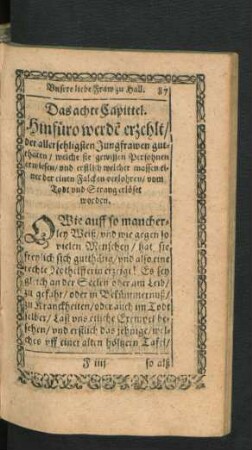 Unsere liebe Fraw zu Hall. 87
Das achte Capittel.
Hinfüro werdē erzehlt/
der allersehligsten Jungfrawen gut-
thaten/ welche sie gewissen Persohnen
erwiesen/ und erstlich welcher massen ei-
ner der einen Falcken verlohren/ vom
Todt und Strang erlöset
worden.
O Wie auff so mancher-
ley Weiß/ und wie gegen so
vielen Menschen/ hat sie
freylich sich gutthätig/ und als eine
rechte Nothelfferin erzeigt! Es sey
gleich an der Seelen oder am Leib/
zu gefahr/ oder in Bekümmernuß/
in Kranckheiten/ oder auch im Todt
selber/ Last uns etliche Exempel be-
sehen/ und erstlich das jehnige/ wel-
ches uff einer alten höltzern Tafel/
F iiij so alß